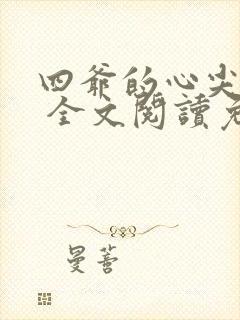 四爺的心尖
全文閱讀免
曼薔